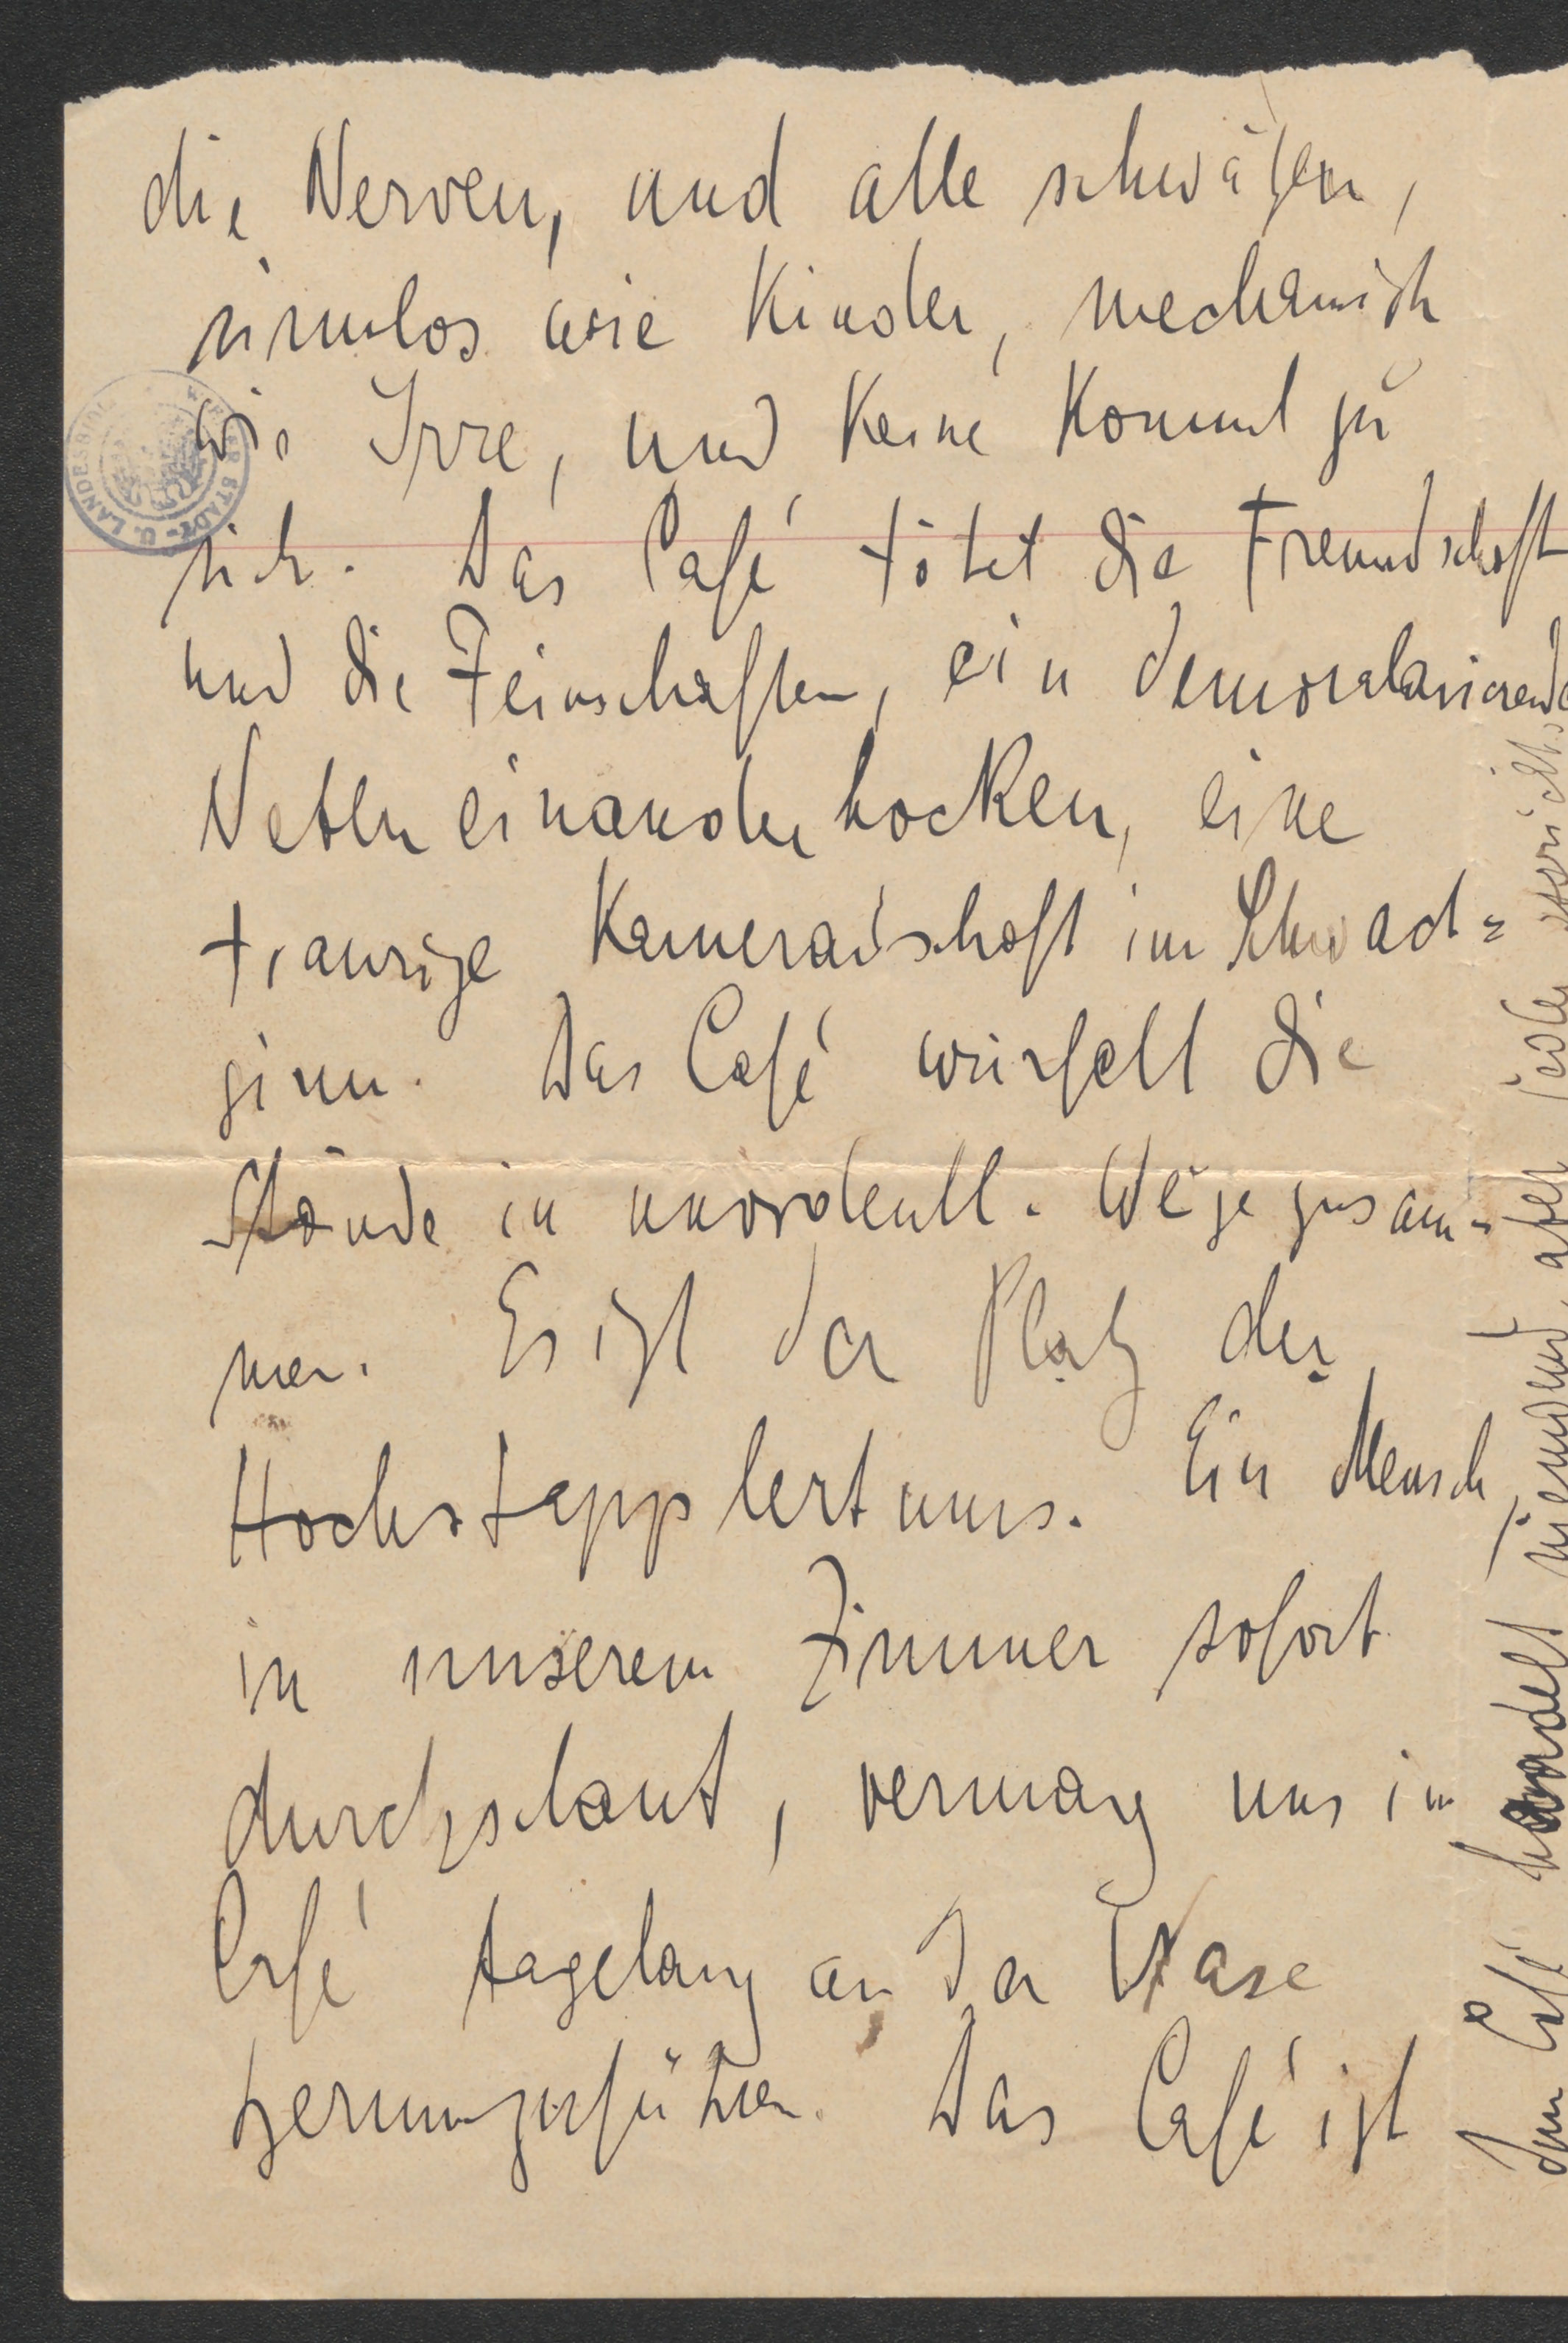 die Nerven, und alle schwätzen,
sinnlos wie Kinder, mechanisch
wie Irre, und keine kommt zu
sich. Das Café tötet die Freundschaft
und die Feinschaften, ein demoralisierende
Nebeneinanderhocken, eine
traurige Kameradschaft im Schwach=
sinn. Das Café würfelt die
Stände in unordentl. Weise zusam=
men. Es ist der Platz des
Hochstapplertums. Ein Mensch,
in unserem Zimmer sofort
durchschaut, vermag uns im
Café tagelang an der Nase
herumzuführen. Das Café ist
dem Café handelt niemand, aber jeder
STADT- U. LANDESBI